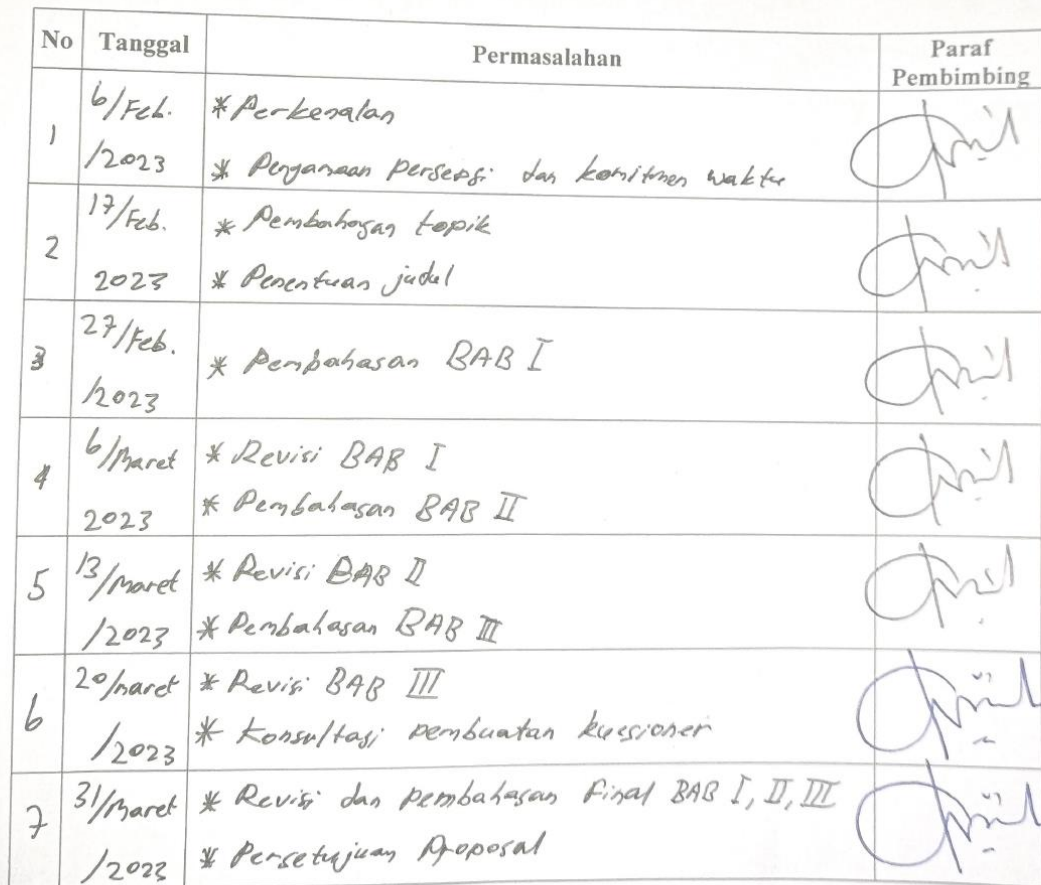 No Tanggal Permasalahan Paraf Pembimbing
1 6/Feb. /2023 * Perkenalan
* Penyamaan persepsi dan komitmen waktu
2 17/Feb. 2023 * Pembahasan topik
* Penentuan judul
3 27/Feb. /2023 * Pembahasan BAB I
4 6/Maret 2023 * Revisi BAB I
* Pembahasan BAB II
5 13/Maret /2023 * Revisi BAB II
* Pembahasan BAB III
6 20/Maret /2023 * Revisi BAB III
* Konsultasi pembuatan kuesioner
7 31/Maret /2023 * Revisi dan pembahasan final BAB I, II, III
* Persetujuan Proposal